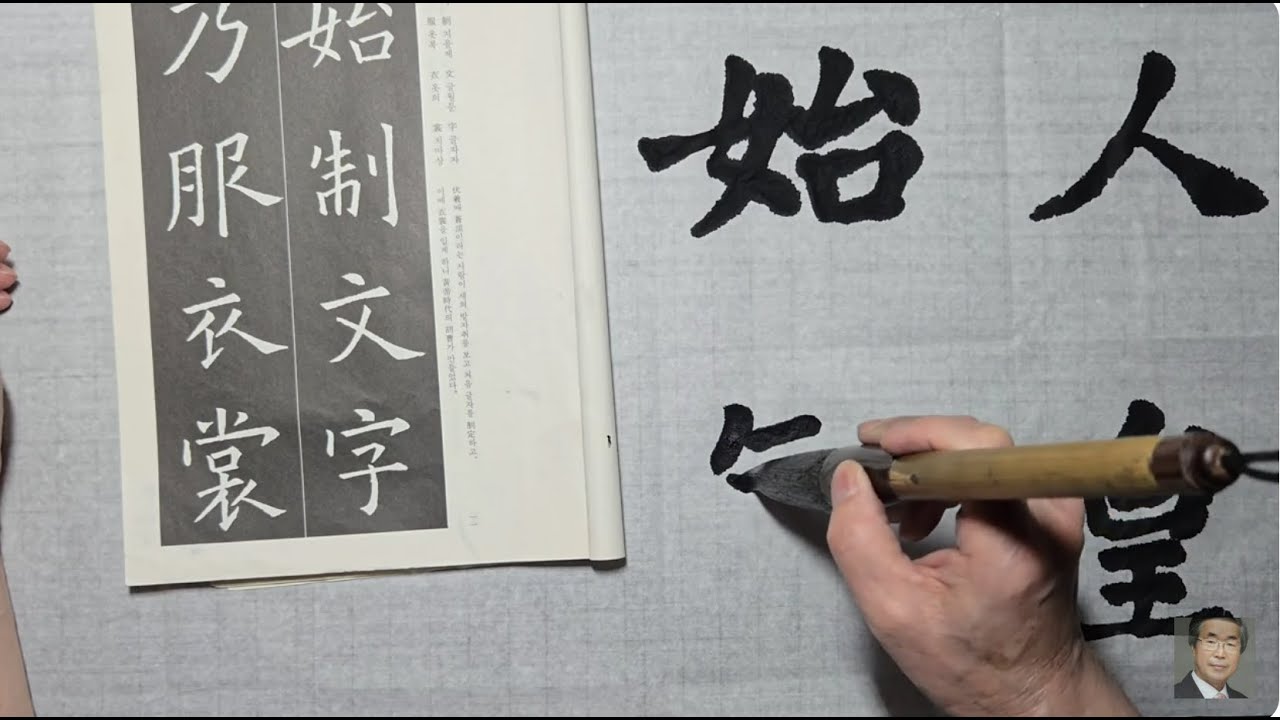 人皇
始
制 지을제 文 글월문 字 글자자
服 옷복 衣 옷의 裳 치마상
伏羲때 蒼頡이라는 사람이 새의 발자취를 보고 처음 글자를 制定하고,
이에 衣裳을 입게 하니 黃帝時代의 胡曹가 만들었다.
始制文字
乃服衣裳